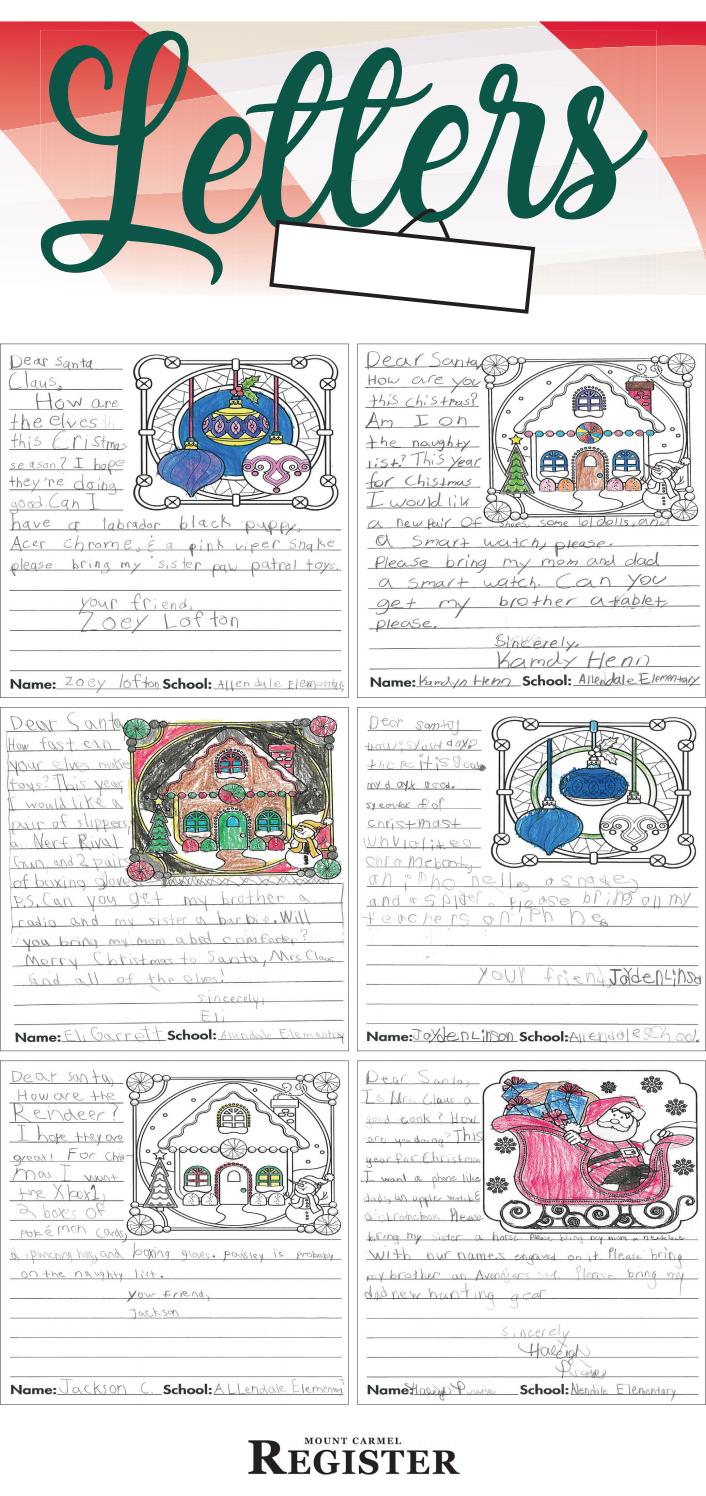 Letters
Dear Santa
Claus,
How are
the elves
this Cristmas
season? I hope
they're doing
good. Can I
have a labrador black puppy,
Acer chrome, & a pink viper snake
please bring my sister paw patrol toys.
your friend,
Zoey Lofton
Name: Zoey lofton School: Allendale Elementary
Dear Santa,
How are you
this chistmas?
Am I on
the naughty
list? This year
for Chistmas
I would lik
a new pair of shoes, some lol dolls, and
a smart watch, please.
Please bring my mom and dad
a smart watch. Can you
get my brother a tablet
please.
Sincerely,
Kamdy Henn
Name: Kamdyn Henn School: Allendale Elementary
Dear Santa
How fast can
your elves make
toys? This year
I would like a
pair of slippers
a Nerf Rival
Gun, and 2 pairs
of boxing gloves
P.S. Can you get my brother a
radio and my sister a barbie. Will
you bring my mom a bed comforter?
Merry Christmas to Santa, Mrs Claus
and all of the elves!
sincerely,
Eli
Name: Eli Garrett School: Allendale Elementry
Dear santa
my day's good.
christmast
chromebook
and a spider. Please bring all my
teachers an iph
your friend, Jayden Linso
Name: Jayden Linson School: Allendale School.
Dear santa,
How are the
Reindeer?
I hope they are
great! For Chr
mas I want
the Xbox1,
2 boxes of
pokémon cards,
a punching bag, and boxing gloves. paisley is probably
on the naughty list.
your friend,
Jackson
Name: Jackson C. School: ALLendale Elementary
Dear Santa,
Is Mrs. Claus a
good cook? How
are you doing? This
year for Christmas
I want a phone like
dad's, an apple watch &
a chromebook. Please
bring my sister a horse. Please bring my mom a necklace
with our names engraved on it. Please bring
my brother an Avengers set. Please bring my
dad new hunting gear
sincerely
Haleigh
Name: Haleigh School: llendale Elementary
MOUNT CARMEL
REGISTER